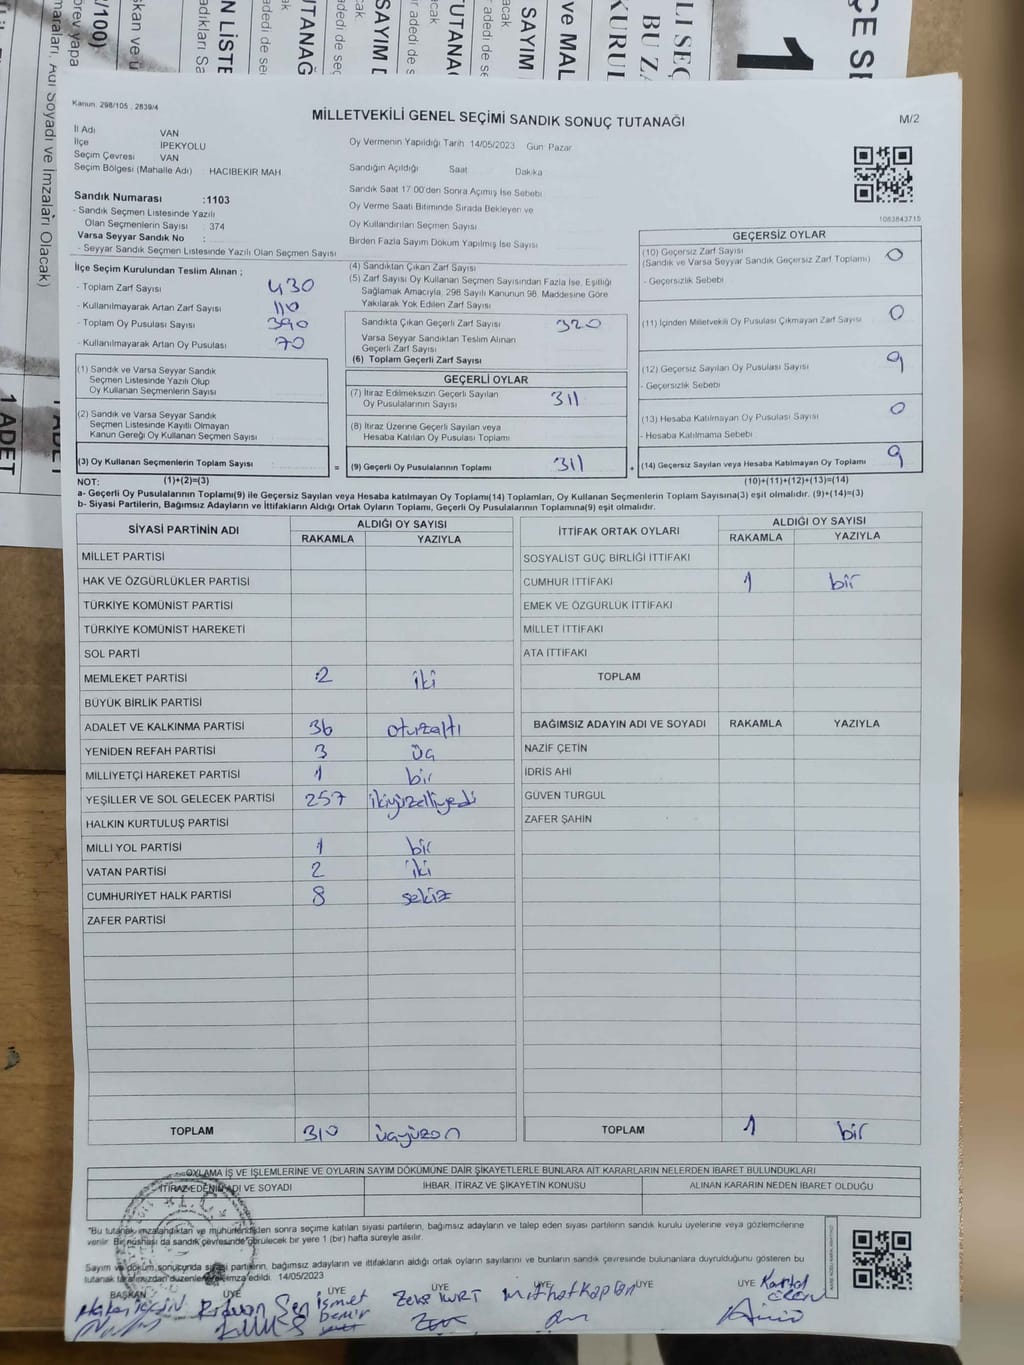 Kanun: 298/105 , 2839/4
MİLLETVEKİLİ GENEL SEÇİMİ SANDIK SONUÇ TUTANAĞI
M/2
İl Adı VAN
İlçe İPEKYOLU
Seçim Çevresi VAN
Seçim Bölgesi (Mahalle Adı) HACIBEKİR MAH
Sandık Numarası :1103
- Sandık Seçmen Listesinde Yazılı
Olan Seçmenlerin Sayısı : 374
Varsa Seyyar Sandık No :
- Seyyar Sandık Seçmen Listesinde Yazılı Olan Seçmen Sayısı
Oy Vermenin Yapıldığı Tarih 14/05/2023 Gün: Pazar
Sandığın Açıldığı Saat Dakika
Sandık Saat 17:00'den Sonra Açımış İse Sebebi
Oy Verme Saati Bitiminde Sırada Bekleyen ve
Oy Kullandırılan Seçmen Sayısı
Birden Fazla Sayım Döküm Yapılmış İse Sayısı
1063843715
İlçe Seçim Kurulundan Teslim Alınan ;
- Toplam Zarf Sayısı 430
- Kullanılmayarak Artan Zarf Sayısı 110
- Toplam Oy Pusulası Sayısı 390
- Kullanılmayarak Artan Oy Pusulası 70
(1) Sandık ve Varsa Seyyar Sandık
Seçmen Listesinde Yazılı Olup
Oy Kullanan Seçmenlerin Sayısı
(2) Sandık ve Varsa Seyyar Sandık
Seçmen Listesinde Kayıtlı Olmayan
Kanun Gereği Oy Kullanan Seçmen Sayısı
(3) Oy Kullanan Seçmenlerin Toplam Sayısı
(4) Sandıktan Çıkan Zarf Sayısı
(5) Zarf Sayısı Oy Kullanan Seçmen Sayısından Fazla İse, Eşitliği
Sağlamak Amacıyla, 298 Sayılı Kanunun 98. Maddesine Göre
Yakılarak Yok Edilen Zarf Sayısı
Sandıkta Çıkan Geçerli Zarf Sayısı 320
Varsa Seyyar Sandıktan Teslim Alınan
Geçerli Zarf Sayısı
(6) Toplam Geçerli Zarf Sayısı
GEÇERLİ OYLAR
(7) İtiraz Edilmeksizin Geçerli Sayılan
Oy Pusulalarının Sayısı 311
(8) İtiraz Üzerine Geçerli Sayılan veya
Hesaba Katılan Oy Pusulası Toplamı
= (9) Geçerli Oy Pusulalarının Toplamı 311
GEÇERSİZ OYLAR
(10) Geçersiz Zarf Sayısı 0
(Sandık ve Varsa Seyyar Sandık Geçersiz Zarf Toplamı)
- Geçersizlik Sebebi
(11) İçinden Milletvekili Oy Pusulası Çıkmayan Zarf Sayısı 0
(12) Geçersiz Sayılan Oy Pusulası Sayısı 9
- Geçersizlik Sebebi
(13) Hesaba Katılmayan Oy Pusulası Sayısı 0
- Hesaba Katılmama Sebebi
+ (14) Geçersiz Sayılan veya Hesaba Katılmayan Oy Toplamı 9
NOT: (1)+(2)=(3) (10)+(11)+(12)+(13)=(14)
a- Geçerli Oy Pusulalarının Toplamı(9) ile Geçersiz Sayılan veya Hesaba katılmayan Oy Toplamı(14) Toplamları, Oy Kullanan Seçmenlerin Toplam Sayısına(3) eşit olmalıdır. (9)+(14)=(3)
b- Siyasi Partilerin, Bağımsız Adayların ve İttifakların Aldığı Ortak Oyların Toplamı, Geçerli Oy Pusulalarının Toplamına(9) eşit olmalıdır.
SİYASİ PARTİNİN ADI ALDIĞI OY SAYISI
RAKAMLA YAZIYLA
MİLLET PARTİSİ
HAK VE ÖZGÜRLÜKLER PARTİSİ
TÜRKİYE KOMÜNİST PARTİSİ
TÜRKİYE KOMÜNİST HAREKETİ
SOL PARTİ
MEMLEKET PARTİSİ 2 iki
BÜYÜK BİRLİK PARTİSİ
ADALET VE KALKINMA PARTİSİ 36 oturzaltı
YENİDEN REFAH PARTİSİ 3 üç
MİLLİYETÇİ HAREKET PARTİSİ 1 bir
YEŞİLLER VE SOL GELECEK PARTİSİ 257 ikiyüzelliyedi
HALKIN KURTULUŞ PARTİSİ
MİLLİ YOL PARTİSİ 1 bir
VATAN PARTİSİ 2 iki
CUMHURİYET HALK PARTİSİ 8 sekiz
ZAFER PARTİSİ
TOPLAM 310 üçyüzon
İTTİFAK ORTAK OYLARI ALDIĞI OY SAYISI
RAKAMLA YAZIYLA
SOSYALİST GÜÇ BİRLİĞİ İTTİFAKI
CUMHUR İTTİFAKI 1 bir
EMEK VE ÖZGÜRLÜK İTTİFAKI
MİLLET İTTİFAKI
ATA İTTİFAKI
TOPLAM
BAĞIMSIZ ADAYIN ADI VE SOYADI RAKAMLA YAZIYLA
NAZİF ÇETİN
İDRİS AHİ
GÜVEN TURGUL
ZAFER ŞAHİN
TOPLAM 1 bir
OYLAMA İŞ VE İŞLEMLERİNE VE OYLARIN SAYIM DÖKÜMÜNE DAİR ŞİKAYETLERLE BUNLARA AİT KARARLARIN NELERDEN İBARET BULUNDUKLARI
İTİRAZ EDENİN ADI VE SOYADI İHBAR, İTİRAZ VE ŞİKAYETİN KONUSU ALINAN KARARIN NEDEN İBARET OLDUĞU
"Bu tutanak imzalandıktan ve mühürlendikten sonra seçime katılan siyasi partilerin, bağımsız adayların ve talep eden siyasi partilerin sandık kurulu üyelerine veya gözlemcilerine
verilir. Bir nüshası da sandık çevresinde görülecek bir yere 1 (bir) hafta süreyle asılır.
Sayım ve döküm sonucunda siyasi partilerin, bağımsız adayların ve ittifakların aldığı ortak oyların sayılarını ve bunların sandık çevresinde bulunanlara duyrulduğunu gösteren bu
tutanak tarafımızdan düzenlenip imza edildi. 14/05/2023
BAŞKAN ÜYE ÜYE ÜYE ÜYE ÜYE ÜYE
Rıdvan Şen İsmet demir Zeki KURT Mithat kaplan